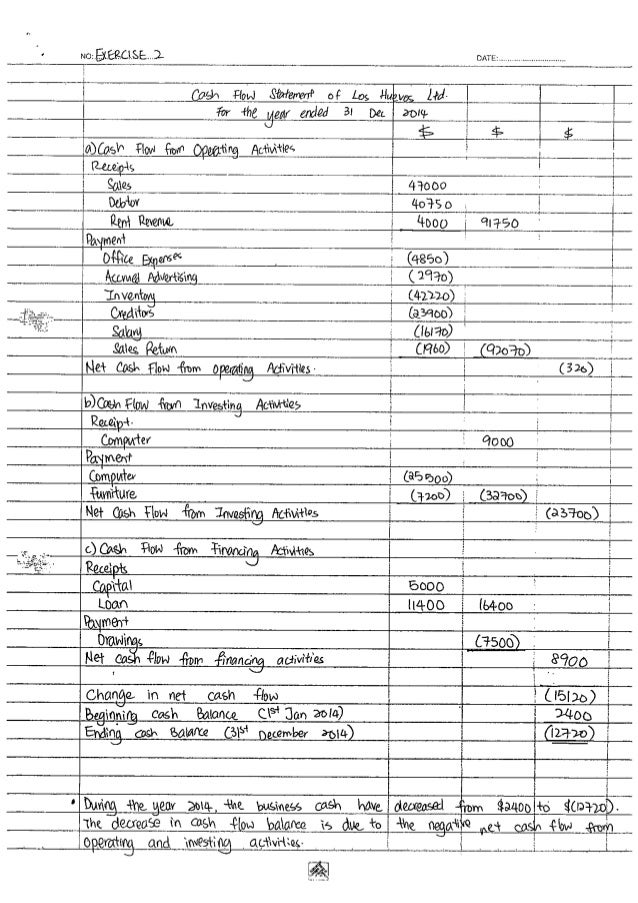 NO: EXERCISE 2 DATE:
Cash Flow Statement of Los Huevos Ltd.
For the year ended 31 Dec 2014
$ $ $
a) Cash Flow from Operating Activities
Receipts
Sales 47000
Debtor 40750
Rent Revenue 4000 91750
Payment
Office Expenses (4850)
Accrued Advertising (2970)
Inventory (42220)
Creditors (23900)
Salary (16170)
Sales Return (1960) (92070)
Net Cash Flow from operating Activities. (320)
b) Cash Flow from Investing Activities
Receipt.
Computer 9000
Payment
Computer (25500)
Furniture (7200) (32700)
Net Cash Flow from Investing Activities (23700)
c) Cash Flow from Financing Activities
Receipts
Capital 5000
Loan 11400 16400
Payment
Drawings (7500)
Net cash flow from financing activities 8900
Change in net cash flow (15120)
Beginning cash Balance (1st Jan 2014) 2400
Ending cash Balance (31st December 2014) (12720)
• During the year 2014, the business cash have decreased from $2400 to $(12720).
The decrease in cash flow balance is due to the negative net cash flow from
operating and investing activities.